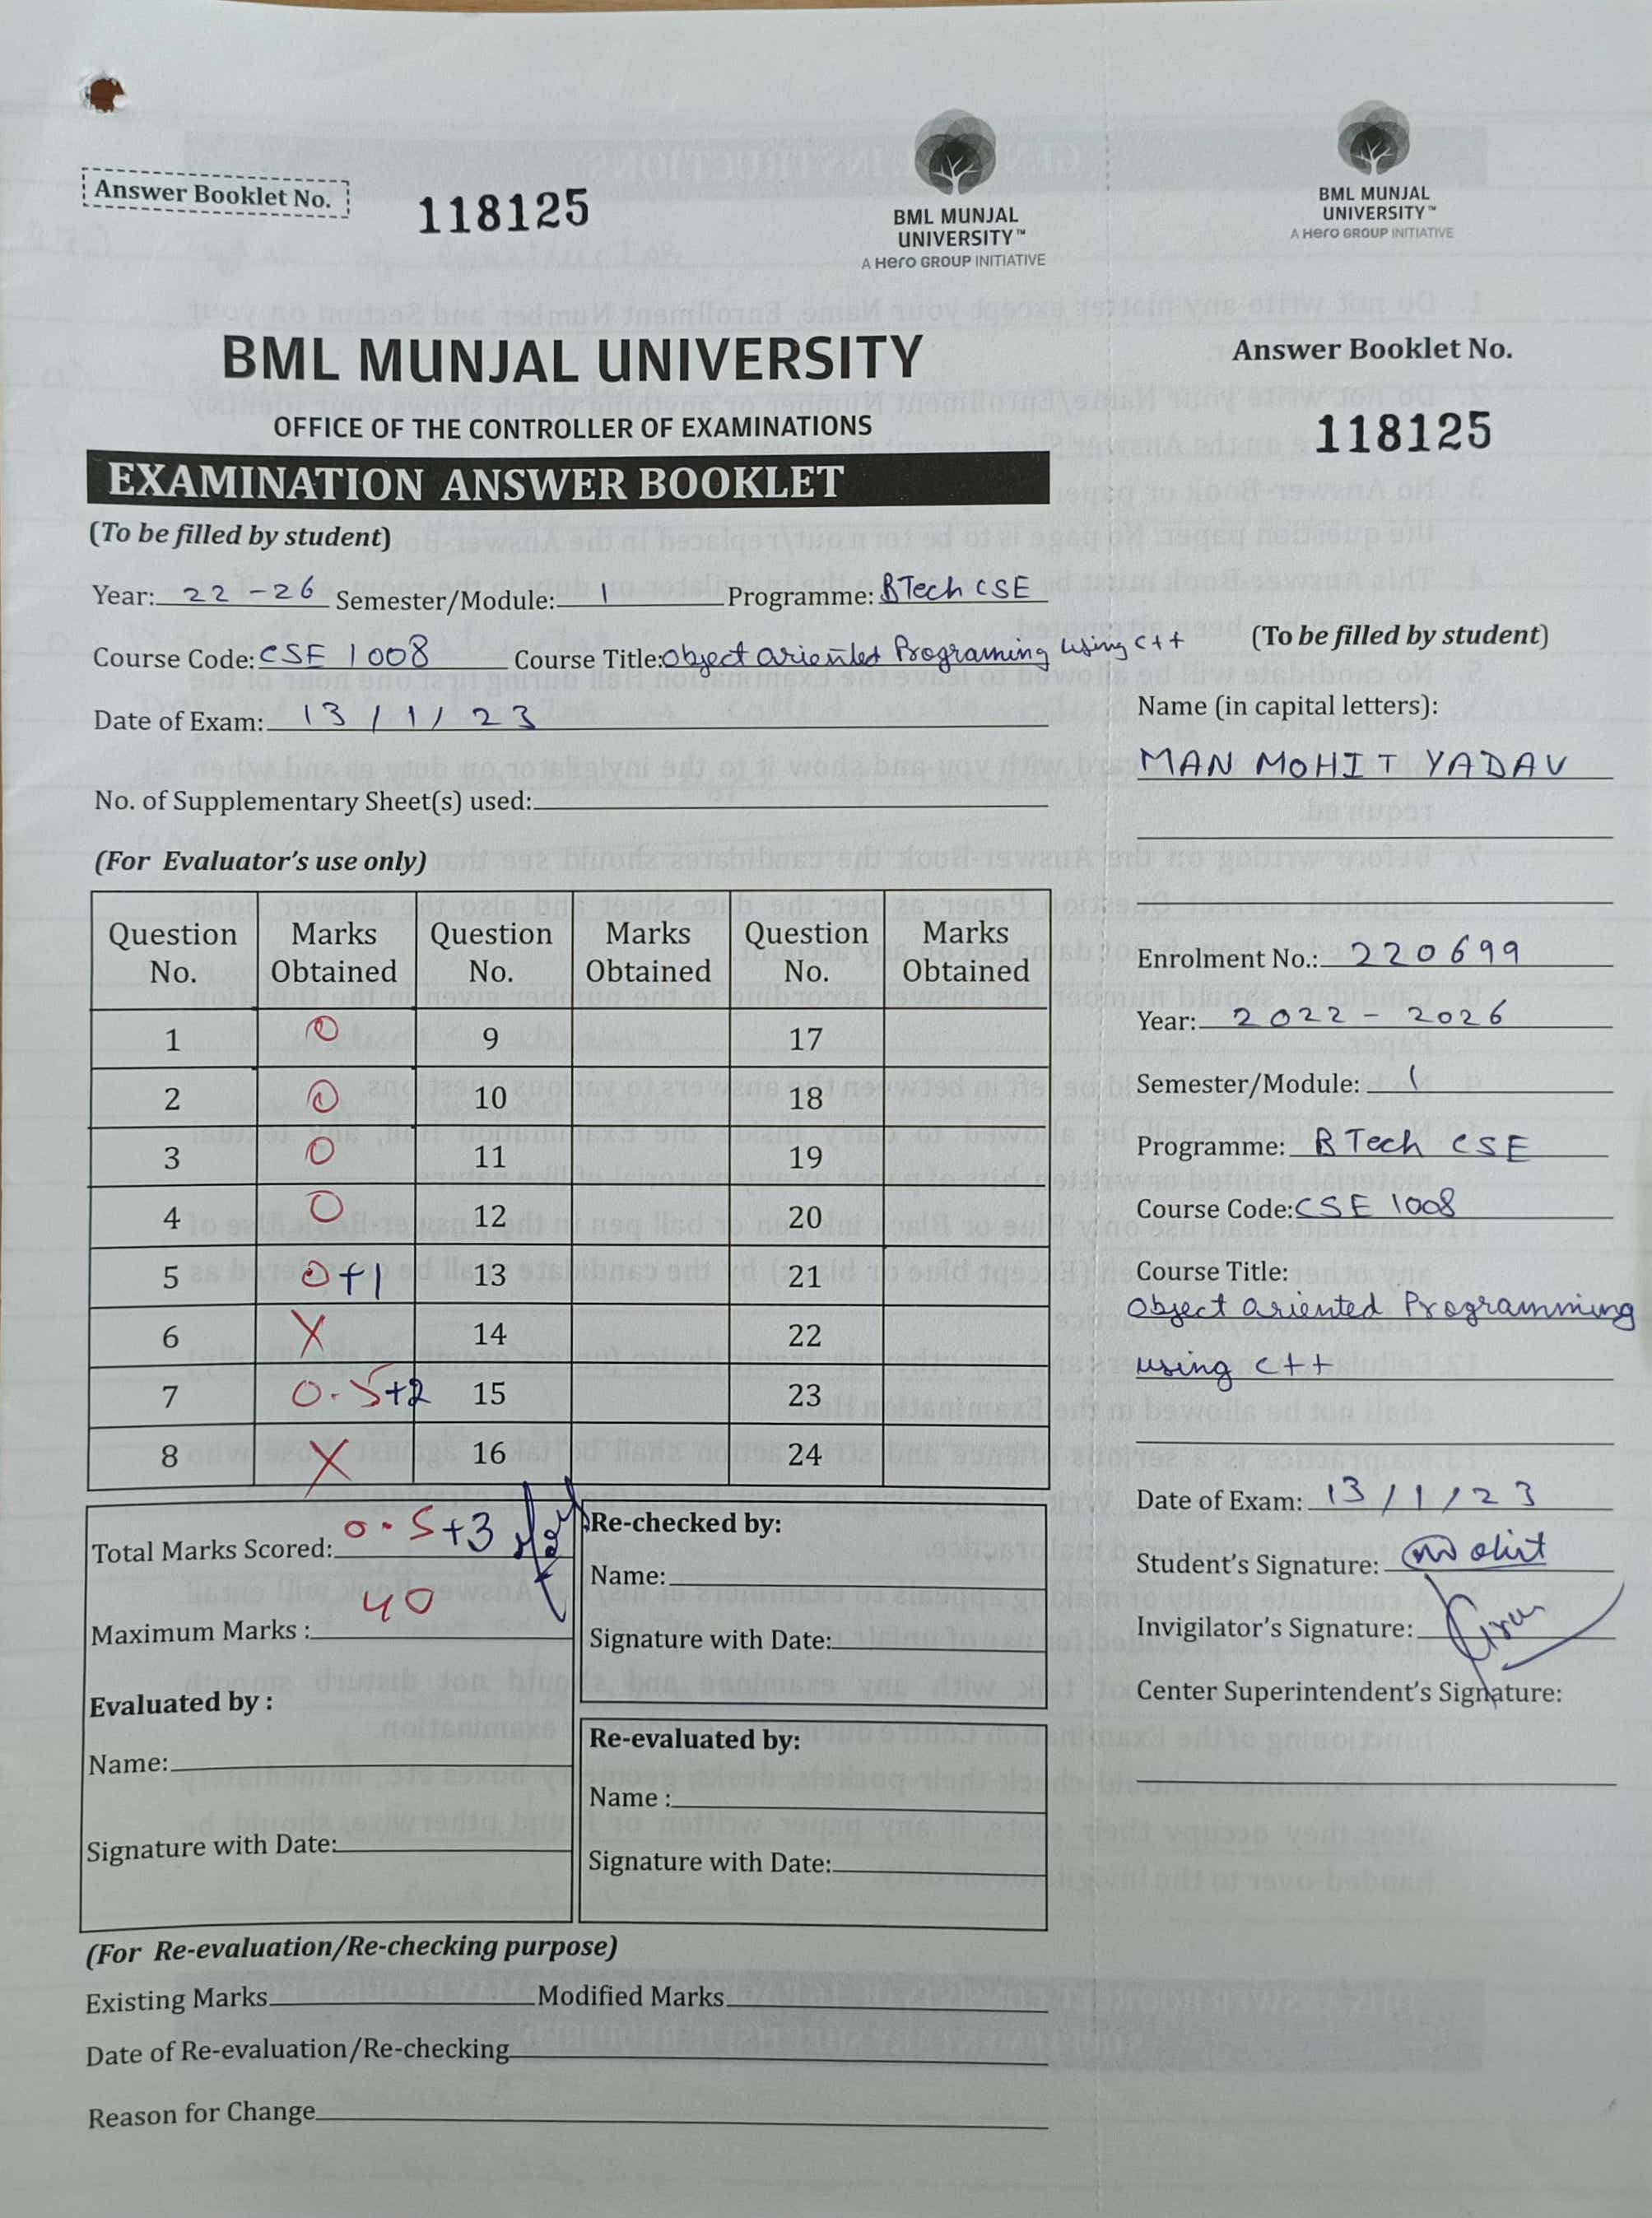 Answer Booklet No. 118125
BML MUNJAL
UNIVERSITY™
A Hero GROUP INITIATIVE
BML MUNJAL
UNIVERSITY™
A Hero GROUP INITIATIVE
BML MUNJAL UNIVERSITY
OFFICE OF THE CONTROLLER OF EXAMINATIONS
EXAMINATION ANSWER BOOKLET
(To be filled by student)
Year: 22-26 Semester/Module: 1 Programme: BTech CSE
Course Code: CSE 1008 Course Title: Object ariented Programing using C++
Date of Exam: 13/1/23
No. of Supplementary Sheet(s) used:
(For Evaluator's use only)
Question No. Marks Obtained Question No. Marks Obtained Question No. Marks Obtained
1 0 9 17
2 0 10 18
3 0 11 19
4 0 12 20
5 0+1 13 21
6 X 14 22
7 0.5+2 15 23
8 X 16 24
Total Marks Scored: 0.5+3
Maximum Marks : 40
Evaluated by :
Name:
Signature with Date:
Re-checked by:
Name:
Signature with Date:
Re-evaluated by:
Name :
Signature with Date:
(For Re-evaluation/Re-checking purpose)
Existing Marks Modified Marks
Date of Re-evaluation/Re-checking
Reason for Change
Answer Booklet No.
118125
(To be filled by student)
Name (in capital letters):
MAN MOHIT YADAV
Enrolment No.: 220699
Year: 2022 - 2026
Semester/Module: 1
Programme: B Tech CSE
Course Code: CSE 1008
Course Title:
Object ariented Programming
using C++
Date of Exam: 13/1/23
Student's Signature: Mohit
Invigilator's Signature:
Center Superintendent's Signature: